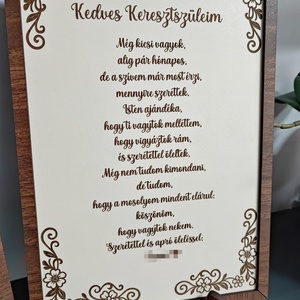 Kedves Keresztszüleim
Még kicsi vagyok,
alig pár hónapos,
de a szívem már most érzi,
mennyire szerettek.
Isten ajándéka,
hogy ti vagytok mellettem,
hogy vigyáztok rám,
és szeretettel öleltek.
Még nem tudom kimondani,
de tudom,
hogy a mosolyom mindent elárul:
köszönöm,
hogy vagytok nekem.
Szeretettel és apró öleléssel: